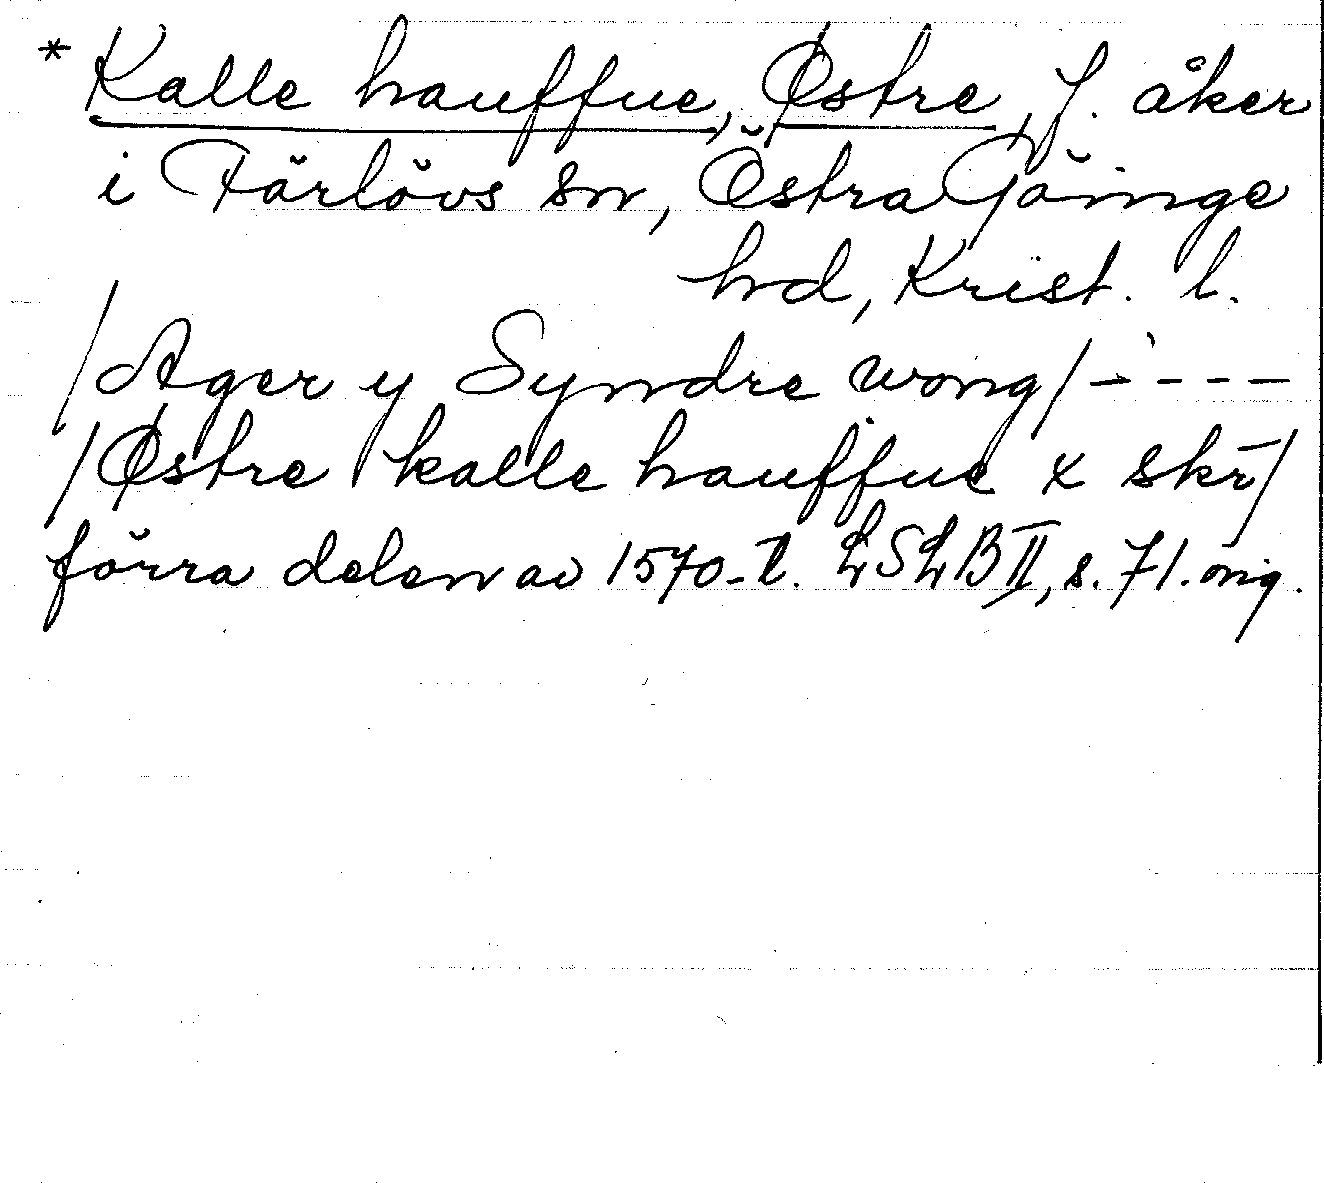 * Kalle hauffue, Østre, f. åker
i Färlövs sn, Östra Göinge
hd, Krist. l.
/Ager y Syndre wong/ - - - - -
/Østre kalle hauffue x skr̄/
förra delen av 1570-t. LSLB II, s. 71. orig.